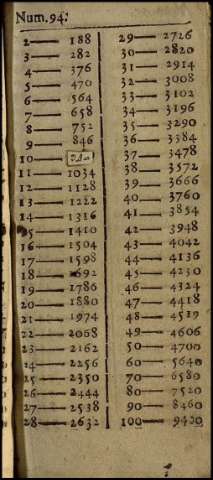 Num. 94.
2 — 188
3 — 282
4 — 376
5 — 470
6 — 564
7 — 658
8 — 752
9 — 846
10 —
11 — 1034
12 — 1128
13 — 1222
14 — 1316
15 — 1410
16 — 1504
17 — 1598
18 — 1692
19 — 1786
20 — 1880
21 — 1974
22 — 2068
23 — 2162
24 — 2256
25 — 2350
26 — 2444
27 — 2538
28 — 2632
29 — 2726
30 — 2820
31 — 2914
32 — 3008
33 — 3102
34 — 3196
35 — 3290
36 — 3384
37 — 3478
38 — 3572
39 — 3666
40 — 3760
41 — 3854
42 — 3948
43 — 4042
44 — 4136
45 — 4230
46 — 4324
47 — 4418
48 — 4519
49 — 4606
50 — 4700
60 — 5640
70 — 6580
80 — 7520
90 — 8460
100 — 9400